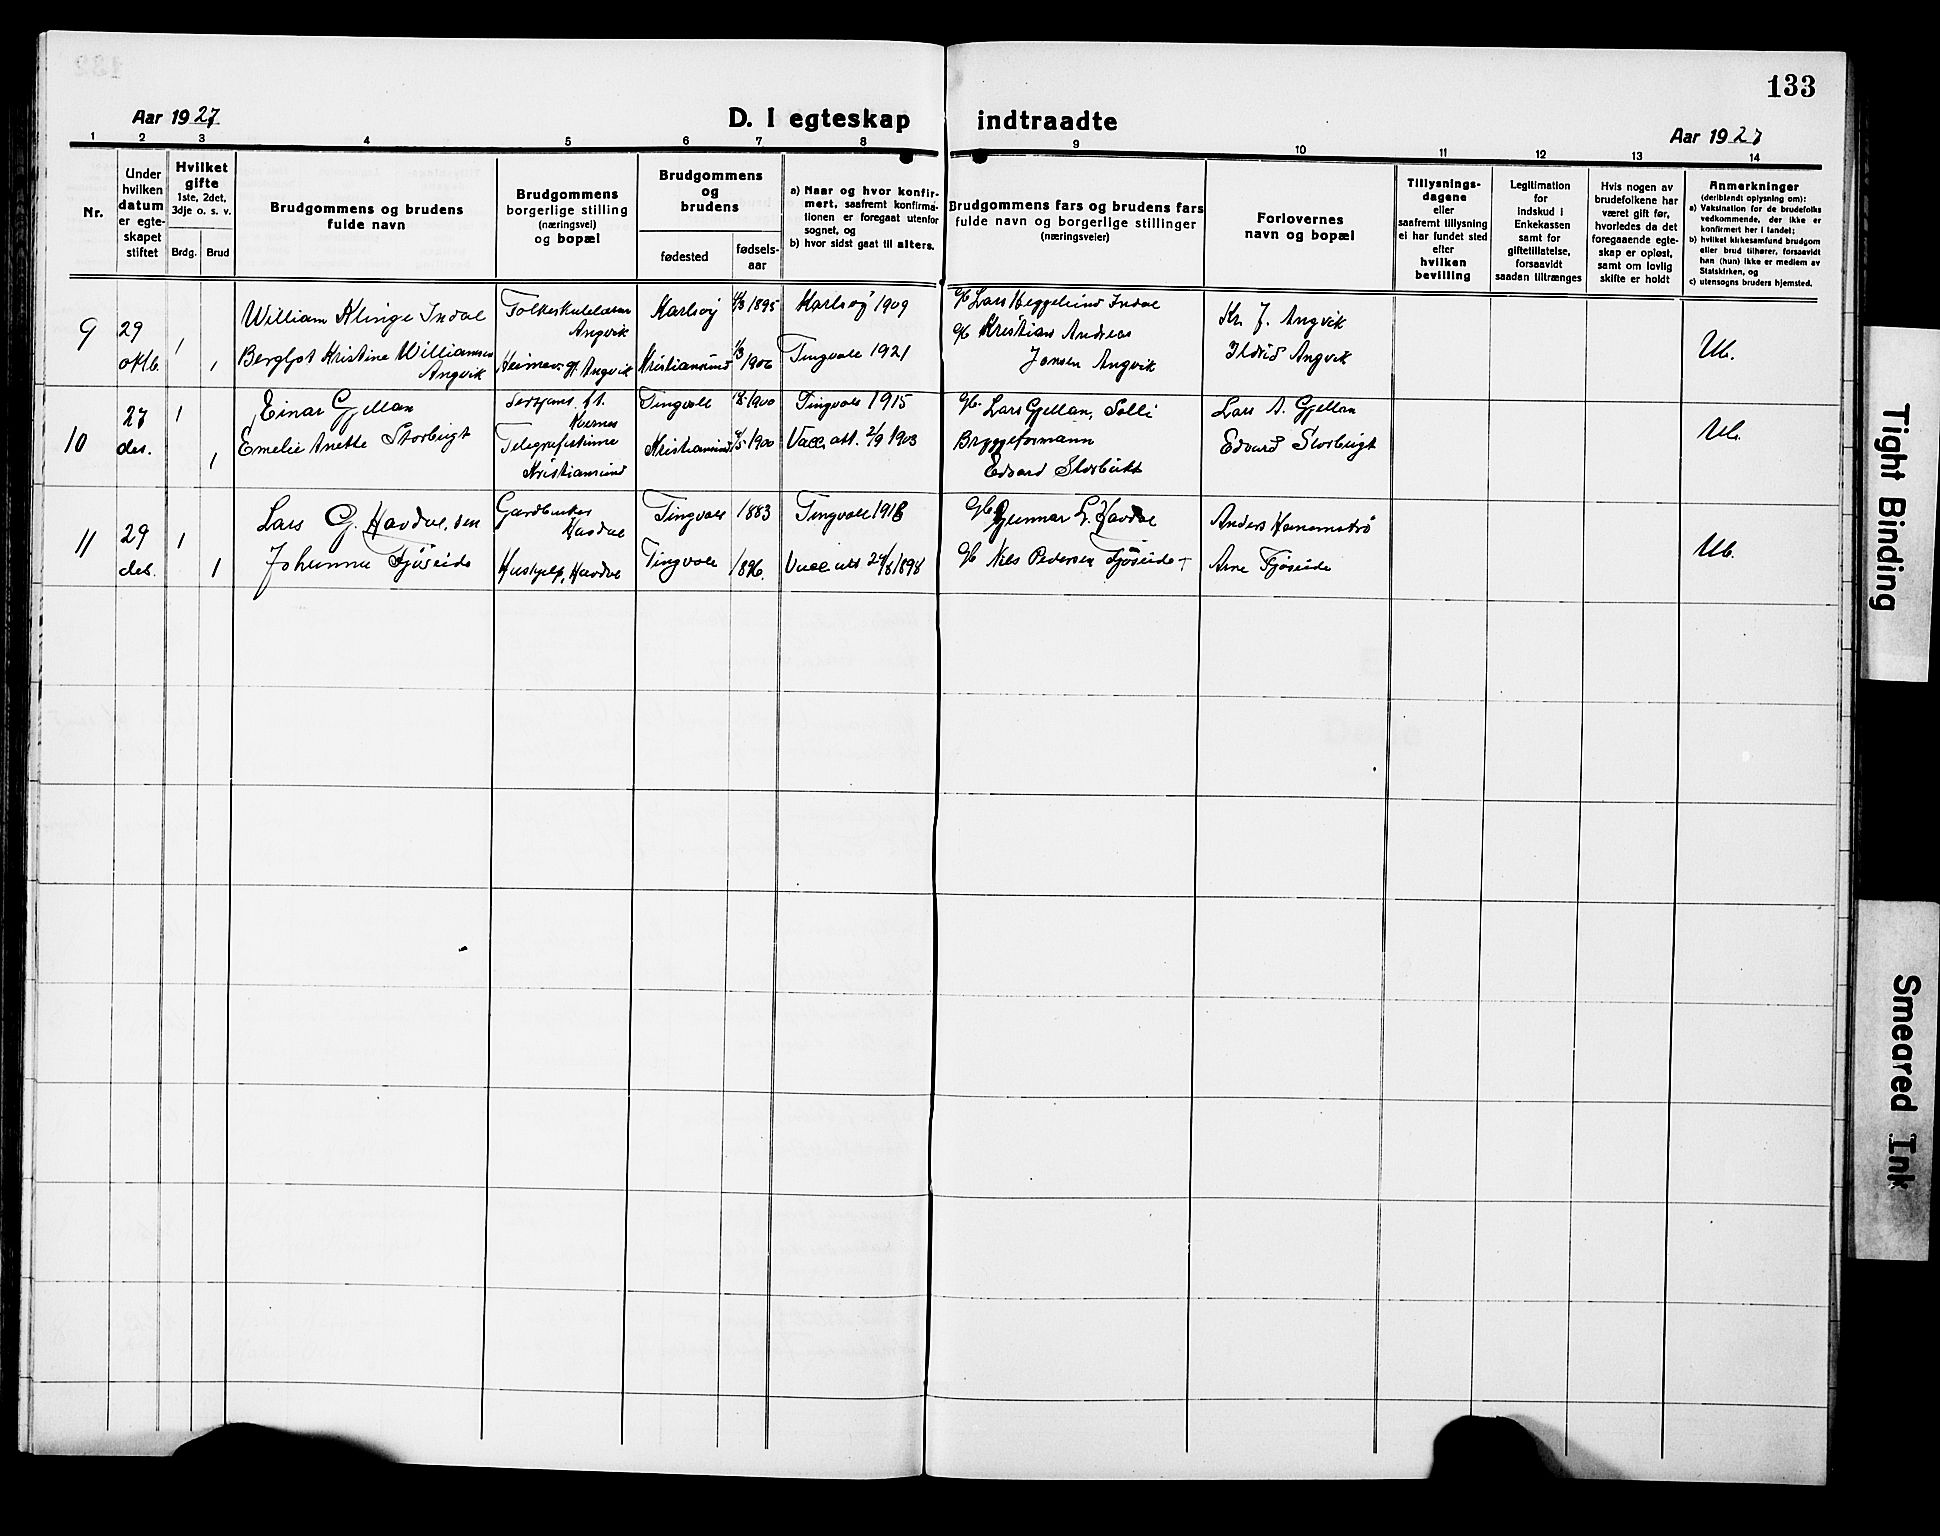 133
Aar 1927
D. I egteskap indtraadte
Aar 1927
1 2 3 4 5 6 7 8 9 10 11 12 13 14
Nr.
Under
hvilken
datum
er egte-
skapet
stiftet
Hvilket
gifte
1ste, 2det,
3dje o. s. v.
Brdg. Brud
Brudgommens og brudens
fulde navn
Brudgommens
borgerlige stilling
(næringsvei)
og bopæl
Brudgommens
og
brudens
fødested
fødsels-
aar
a) Naar og hvor konfir-
mert, saafremt konfirma-
tionen er foregaat utenfor
sognet, og
b) hvor sidst gaat til alters.
Brudgommens fars og brudens fars
fulde navn og borgerlige stillinger
(næringsveier)
Forlovernes
navn og bopæl
Tillysnings-
dagene
eller
saafremt tillysning
ei har fundet sted
efter
hvilken
bevilling
Legitimation
for
Indskud i
Enkekassen
samt for
giftetillatelse,
forsaavidt
saadan tiltrænges
Hvis nogen av
brudefolkene har
været gift før,
hvorledes da det
foregaaende egte-
skap er opløst,
samt om lovlig
skifte er holdt
Anmerkninger
(deriblandt oplysning om):
a) Vaksination for de brudefolks
vedkommende, der ikke er
konfirmert her i landet;
b) hvilket kirkesamfund brudgom
eller brud tilhører, forsaavidt
han (hun) ikke er medlem av
Statskirken, og
c) utensogns bruders hjemsted.
9
29
oktb.
1
1
William Klinge Indal
Bergljot Kristine Williamsen
Angvik
Folkeskolelærer
Angvik
Angvik
Karlsøy 1895
Kristiansund 1906
Karlsøy 1909
Tingvoll 1921
Lars Heggelund Indal
Kristian Andreas
Jonsen Angvik
Kr. J. Angvik
Ildrid Angvik
Ub.
10
27
des.
1
1
Einar Gjellan
Emelie Anette Storbugt
Kvernes
Telegrafistinne
Kristiansund
Tingvoll 1900
Kristiansund 1900
Tingvoll 1915
Vacc. att. 2/9 1903
Lars Gjellan, Solli
Bryggeformann
Edvard Storbukt
Lars A. Gjellan
Edvard Storbugt
Ub.
11
29
des.
1
1
Lars G. Havdal, den
Johanna Fjøseide
Gardbruker
Havdal
Hushjelp, Havdal
Tingvoll 1883
Tingvoll 1896.
Tingvoll
Vacc att 24/8 1898
Gunnar L. Havdal
Nils Pedersen Fjøseide +
Anders Hanemstrø
Arne Fjøseide
Ub.
Tight Binding
Smeared Ink